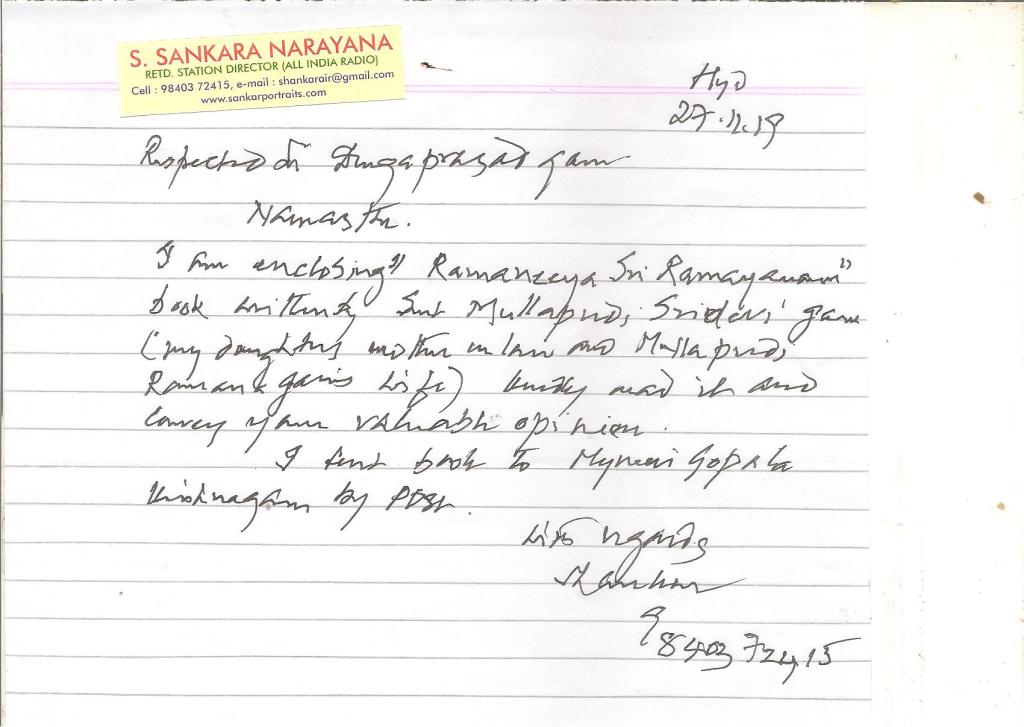 S. SANKARA NARAYANA
RETD. STATION DIRECTOR (ALL INDIA RADIO)
Cell : 98403 72415, e-mail : shankarair@gmail.com
www.sankarportraits.com
Hyd
27.11.19
Respected Dr Durgaprasad garu
Namasthe.
I am enclosing "Ramaneeya Sri Ramayanam"
book written by Smt Mullapudi Sridevi garu
(my daughters mother in law and Mullapudi
Ramana garus wife) kindly read it and
convey your valuable opinion.
I sent book to Myneni Gopala
Krishnagaru by Post.
With regards
Shankar
98403 72415